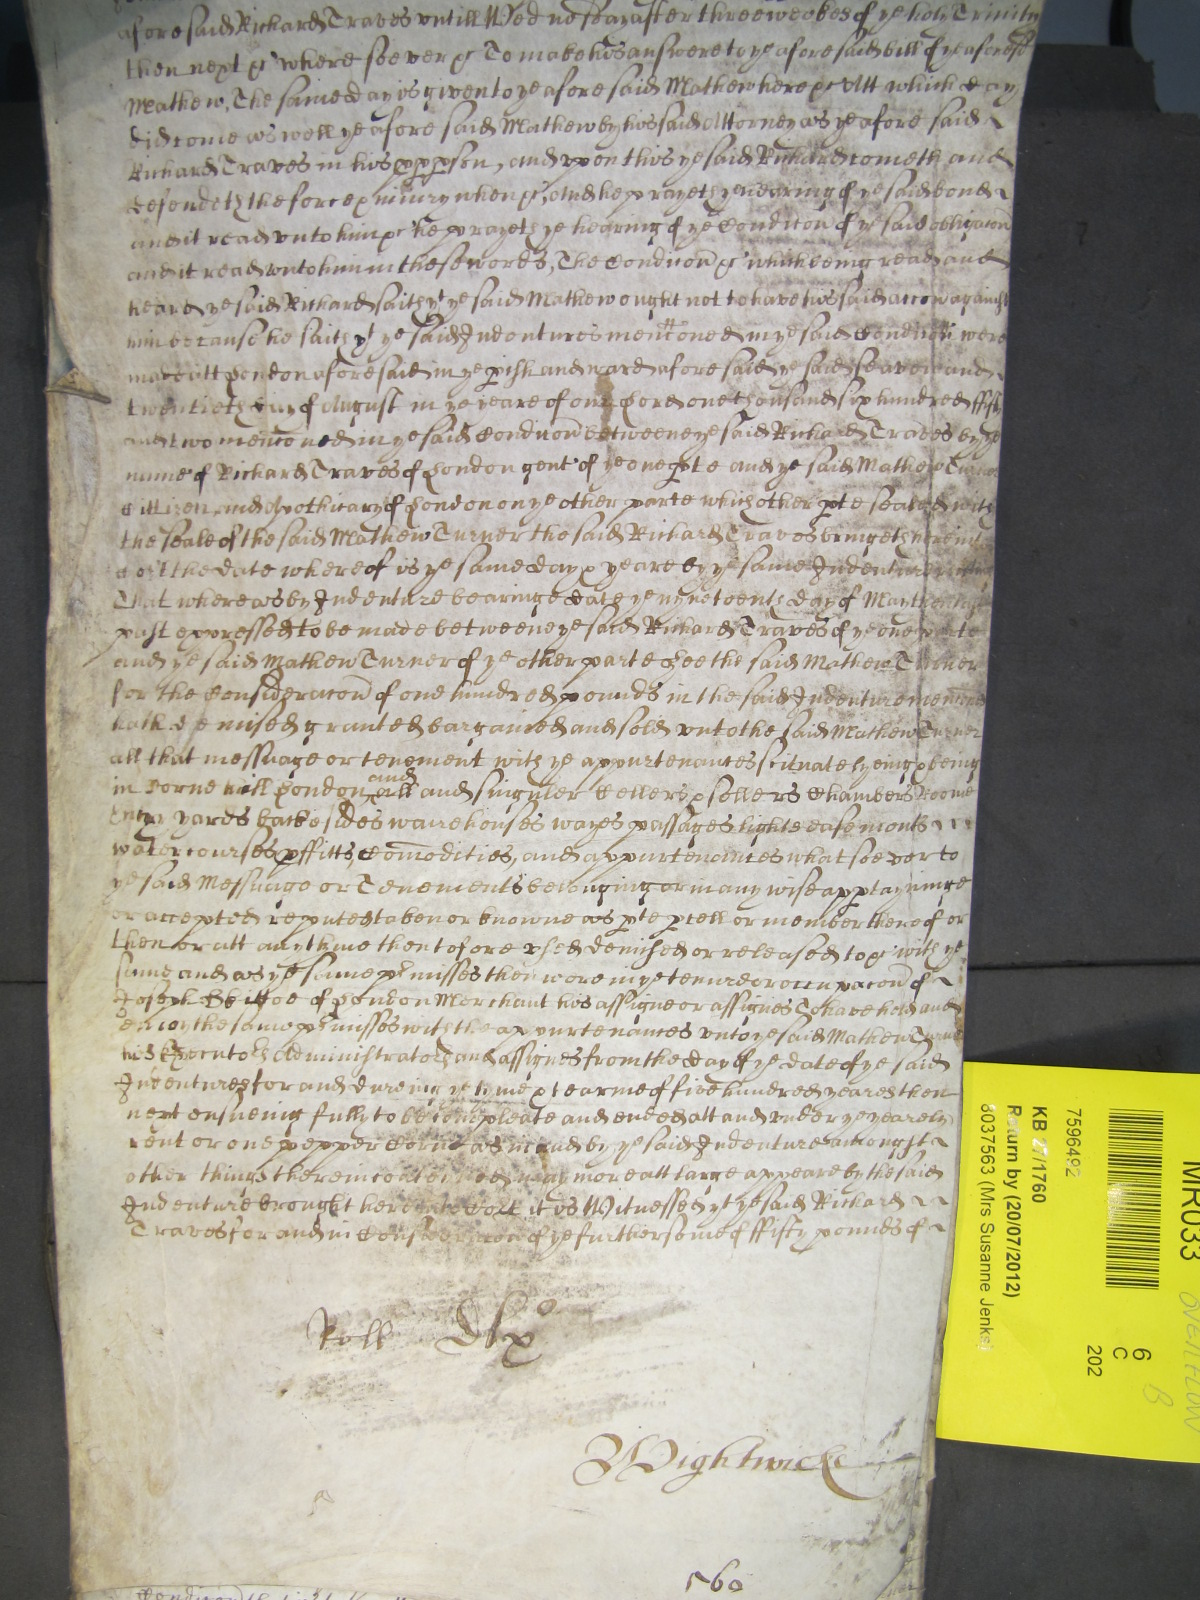 aforesaid Richard Traves untill Wednesday after three weekes of ye holy Trinity
then next &c wheresoever &c To make his answere to ye aforesaid bill of ye aforesd
Mathew, The same day is given to ye aforesaid Mathew here &c Att which day
did come as well ye aforesaid Mathew by his said Attorney as ye aforesaid
Richard Traves in his pp pson, and uppon this ye said Richard cometh and
defendeth the force & iniury when &c, And he prayeth ye hearing of ye said bond
and it read unto him &c he prayeth ye hearing of ye Condicon of ye said obligacon
and it read unto him in these words, The Condicon &c which being read and
heard ye said Richard saith yt ye said Mathew ought not to have his said accon against
him because he saith yt ye said Indentures mentioned in ye said Condicon were
made att London aforesaid in ye pish and ward aforesaid ye said seaven and
twentieth day of August in ye yeare of our Lord one thousand six hundred fifty
and two menconed in ye said Condicon betweene ye said Richard Traves by ye
name of Richard Traves of London gent of ye one pte and ye said Mathew Turner
Cittizen and Apothicary of London on ye other parte which other pte sealed with
the seale of the said Mathew Turner the said Richard Traves bringeth here into
Cort the date whereof is ye same day & yeare by ye same Indenture
That whereas by Indenture bearinge date ye nynetoenth day of May then
past expressed to be made betweene ye said Richard Traves of ye one parte
and ye said Mathew Turner of ye other parte hee the said Mathew Turner
for the Consideracon of one hundred pounds in the said Indenture menconed
hath demised granted bargained and sold unto the said Mathew Turner
all that messuage or tenement with ye appurtenances scituate lyeing & being
in Cornehill London and all and singuler Cellers & sollers Chambers Roomes
Entry yards backesides warehouses wayes passages lights easements
watercourses pffitts, Comodities, and appurtenances whatsoever to
ye said Messuage or Tenements belonging or in any wise apptayninge
or accepted reputed taken or knowne as pte pcell or member thereof or
then or att any time thentofore used demised or released to &c with ye
same and as ye same pmisses then were in ye tenure or occupacon of
Joseph of London Merchant his assigne or assignes To have hold and
enioy the same pmisses with the appurtenances unto ye said Mathew Turner
his Executors Administrators and assignes from the day of ye date of ye said
Indentures for and dureing ye time & tearme of five hundred yeares then
next ensueing fully to be Compleate and ended att and under ye yearely
rent or one pepper Corne as in and by ye said Indentures amongst
other things therein conteined may more att large appeare by the said
Indenture brought here into Cort it is Witnessed yt ye said Richard
Traves for and in Consideracon of ye further some of ffifty pounds of
Roll Dlx
Wightwick
560
MR033
OVERFLOW
B
6
C
202
7596492
KB 27/1760
Return by (20/07/2012)
8037563 (Mrs Susanne Jenks)